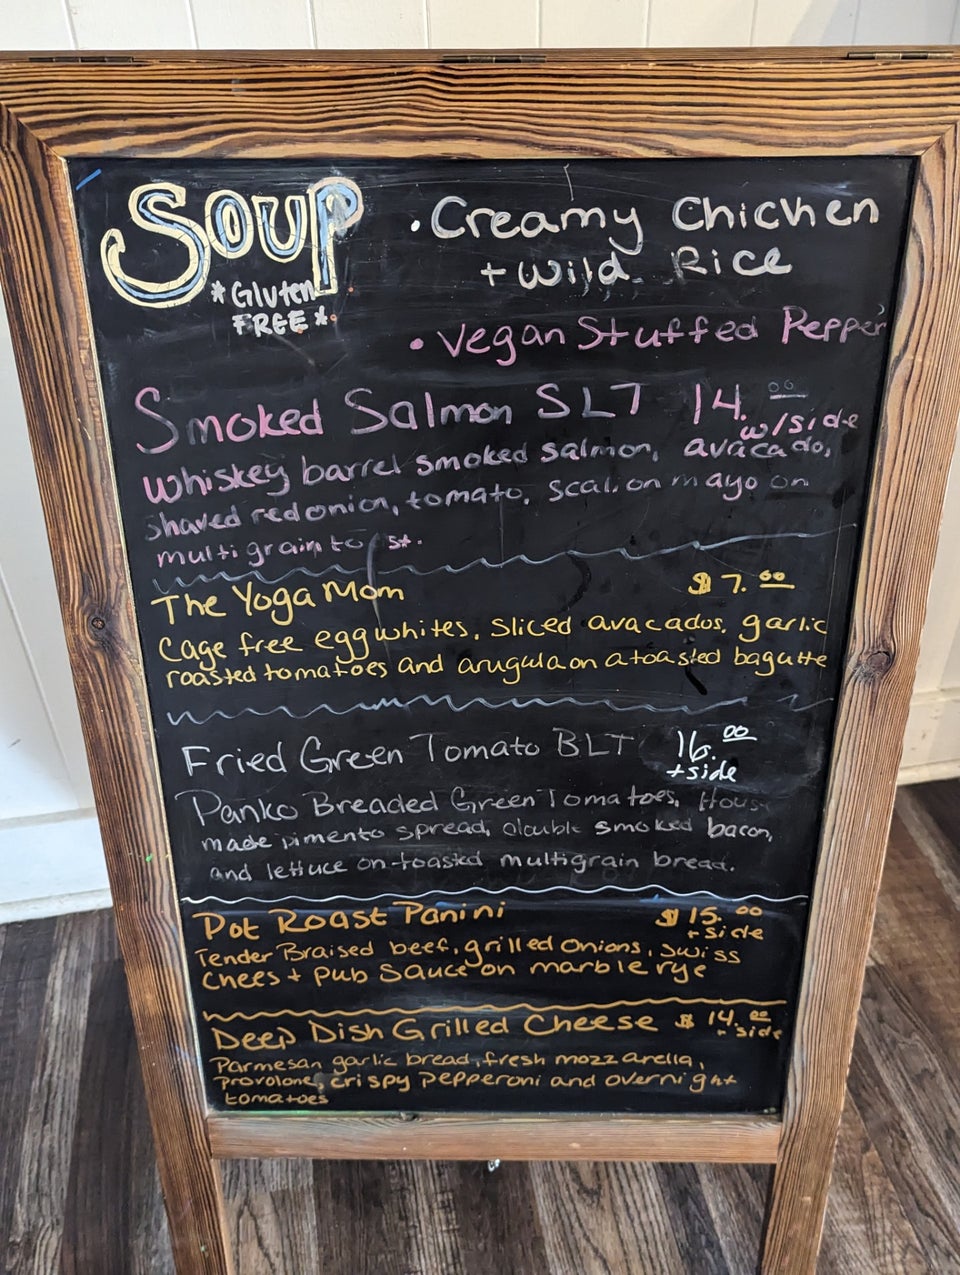 Soup
*Gluten
FREE*
• Creamy Chicken
+ Wild Rice
• Vegan Stuffed Pepper
Smoked Salmon SLT 14.00
w/side
whiskey barrel smoked salmon, avacado,
shaved red onion, tomato, scallion mayo on
multigrain toast.
The Yoga Mom $7.00
Cage free egg whites, sliced avacados, garlic
roasted tomatoes and arugula on a toasted bagutte
Fried Green Tomato BLT 16.00
+side
Panko Breaded Green Tomatoes, House
made pimento spread, double smoked bacon,
and lettuce on toasted multigrain bread.
Pot Roast Panini $15.00
+side
Tender Braised beef, grilled onions, swiss
Chees + Pub Sauce on marble rye
Deep Dish Grilled Cheese $14.00
+side
Parmesan garlic bread, fresh mozzarella,
provolone, crispy pepperoni and overnight
tomatoes